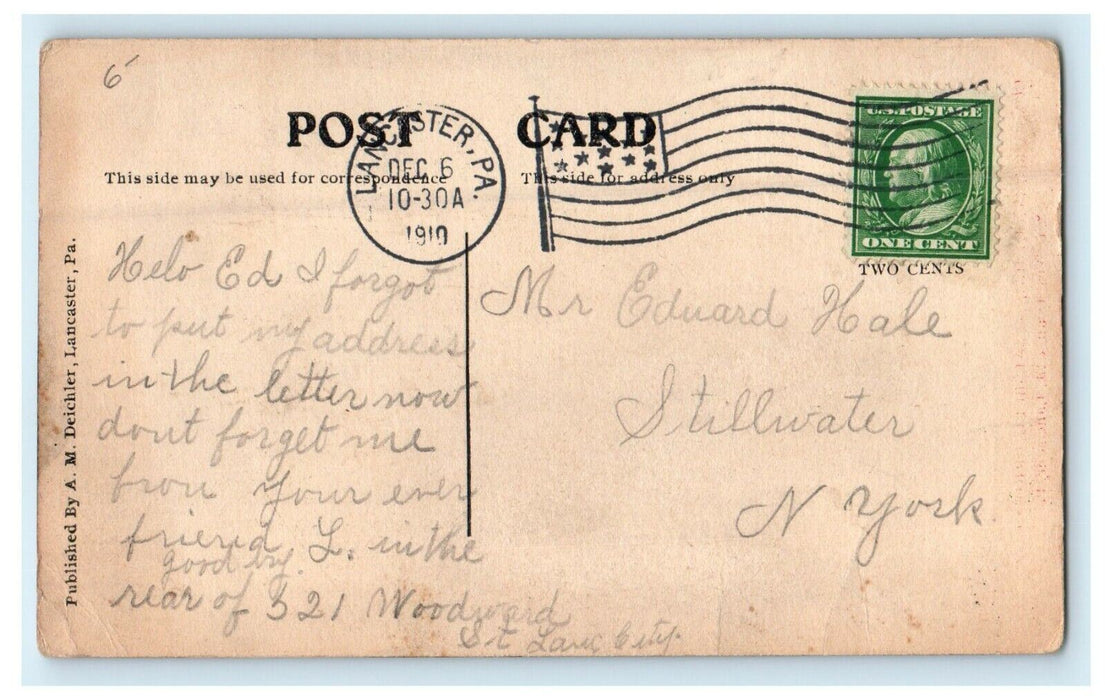 6
POST CARD
This side may be used for correspondence
This side for address only
LANCASTER, PA.
DEC 6
10-30A
1910
U.S. POSTAGE
ONE CENT
TWO CENTS
Published By A. M. Deichler, Lancaster, Pa.
Helo Ed I forgot
to put my address
in the letter now
dont forget me
from your ever
friend L. in the
good by.
rear of 321 Woodward
St Lanc City
Mr Eduard Hale
Stillwater
N York